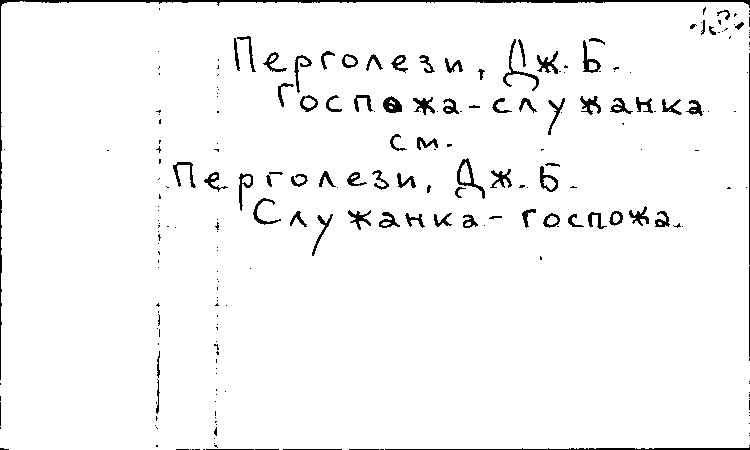 Перголези, Дж. Б.
Госпожа-служанка
см.
Перголези, Дж. Б.
Служанка-госпожа.